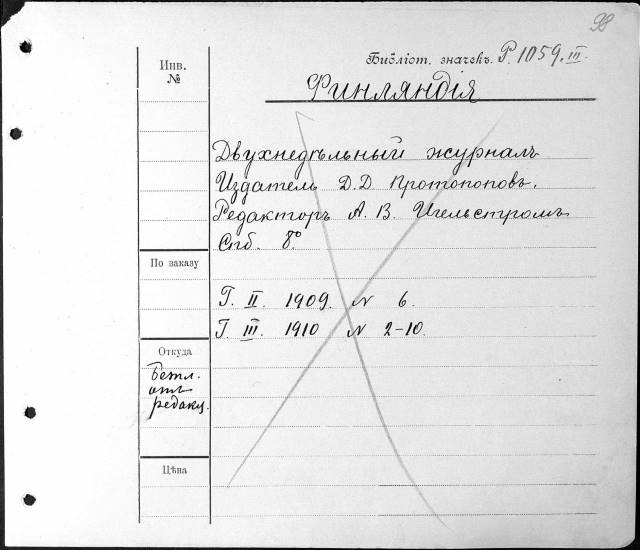 98
Инв.
№
Библіот. значекъ. P. 1059. III.
Финляндія
Двухнедѣльный журналъ
Издатель Д.Д. Протопоповъ.
Редакторъ А. В. Игельстромъ
Спб. 8°
По заказу
Г. II. 1909. N 6.
Г. III. 1910 N 2-10.
Откуда
отъ
редакц.
Цѣна